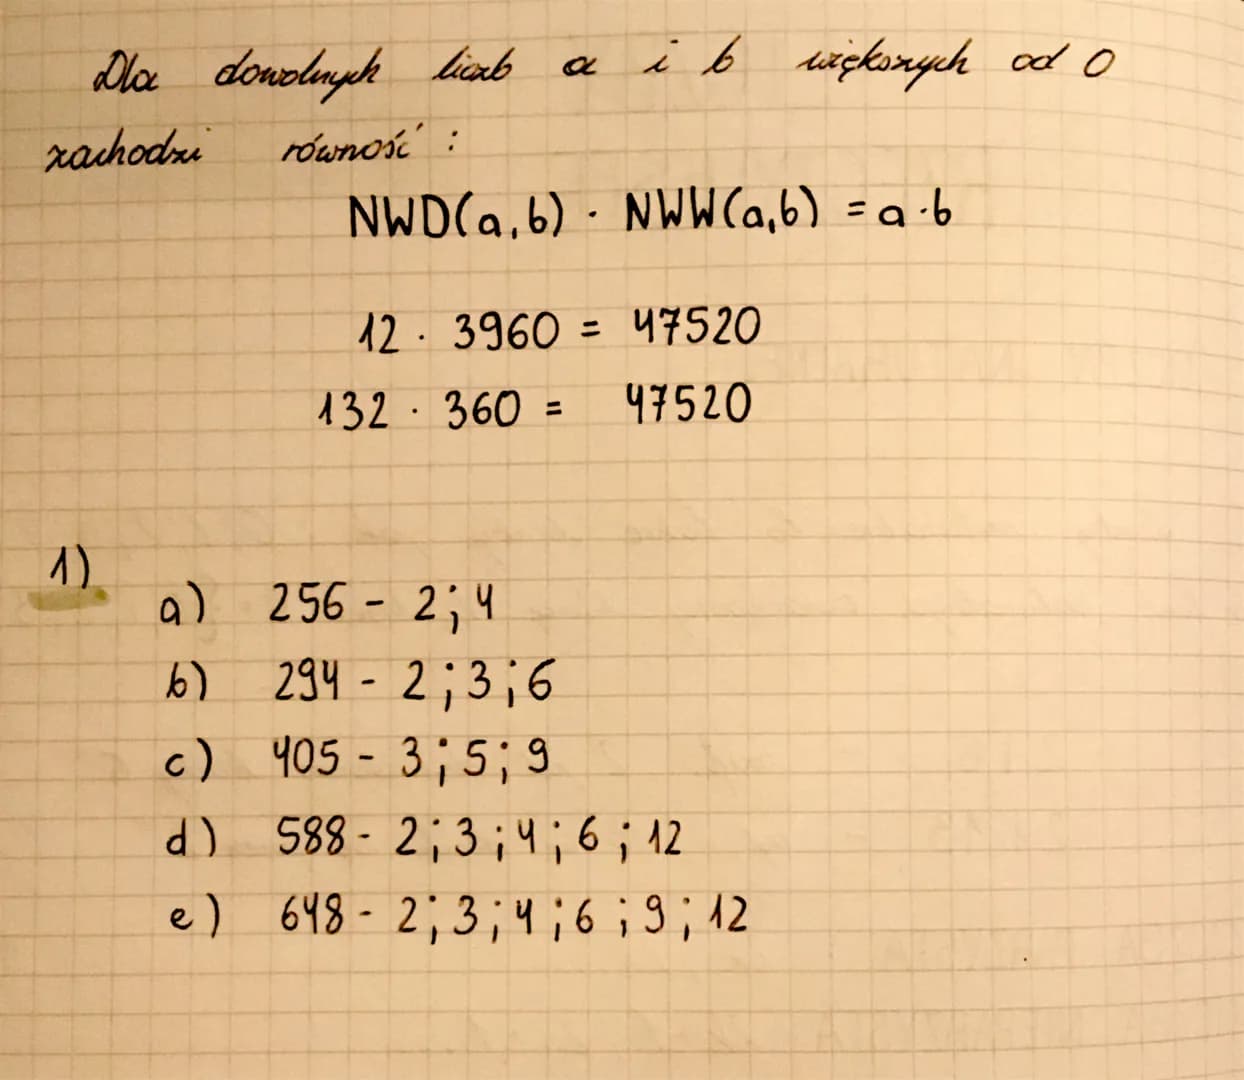 Dla dowolnych liczb a i b większych od 0
zachodzi równość :
NWD(a,b) · NWW(a,b) = a·b
12 · 3960 = 47520
132 · 360 = 47520
1)
a) 256 - 2; 4
b) 294 - 2; 3; 6
c) 405 - 3; 5; 9
d) 588 - 2; 3; 4; 6; 12
e) 648 - 2; 3; 4; 6; 9; 12